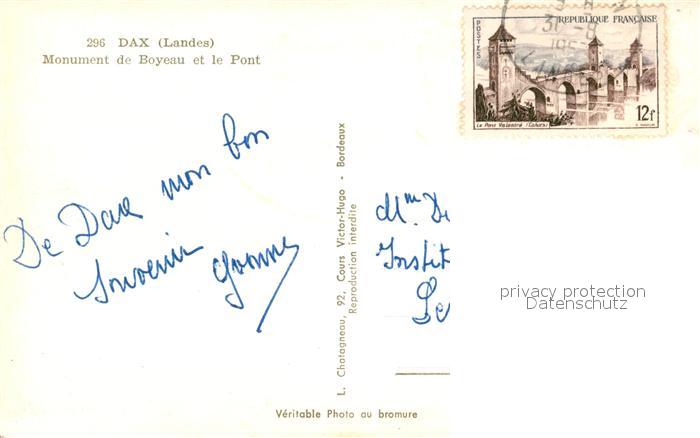 296 DAX (Landes)
Monument de Boyeau et le Pont
REPUBLIQUE FRANÇAISE
POSTES
Le Pont Valentré (Cahors)
12f
De Dax mon bon
souvenir
Yvonne
L. Chatagneau, 92, Cours Victor-Hugo - Bordeaux
Reproduction interdite
Mme De
Instit
privacy protection
Datenschutz
Véritable Photo au bromure